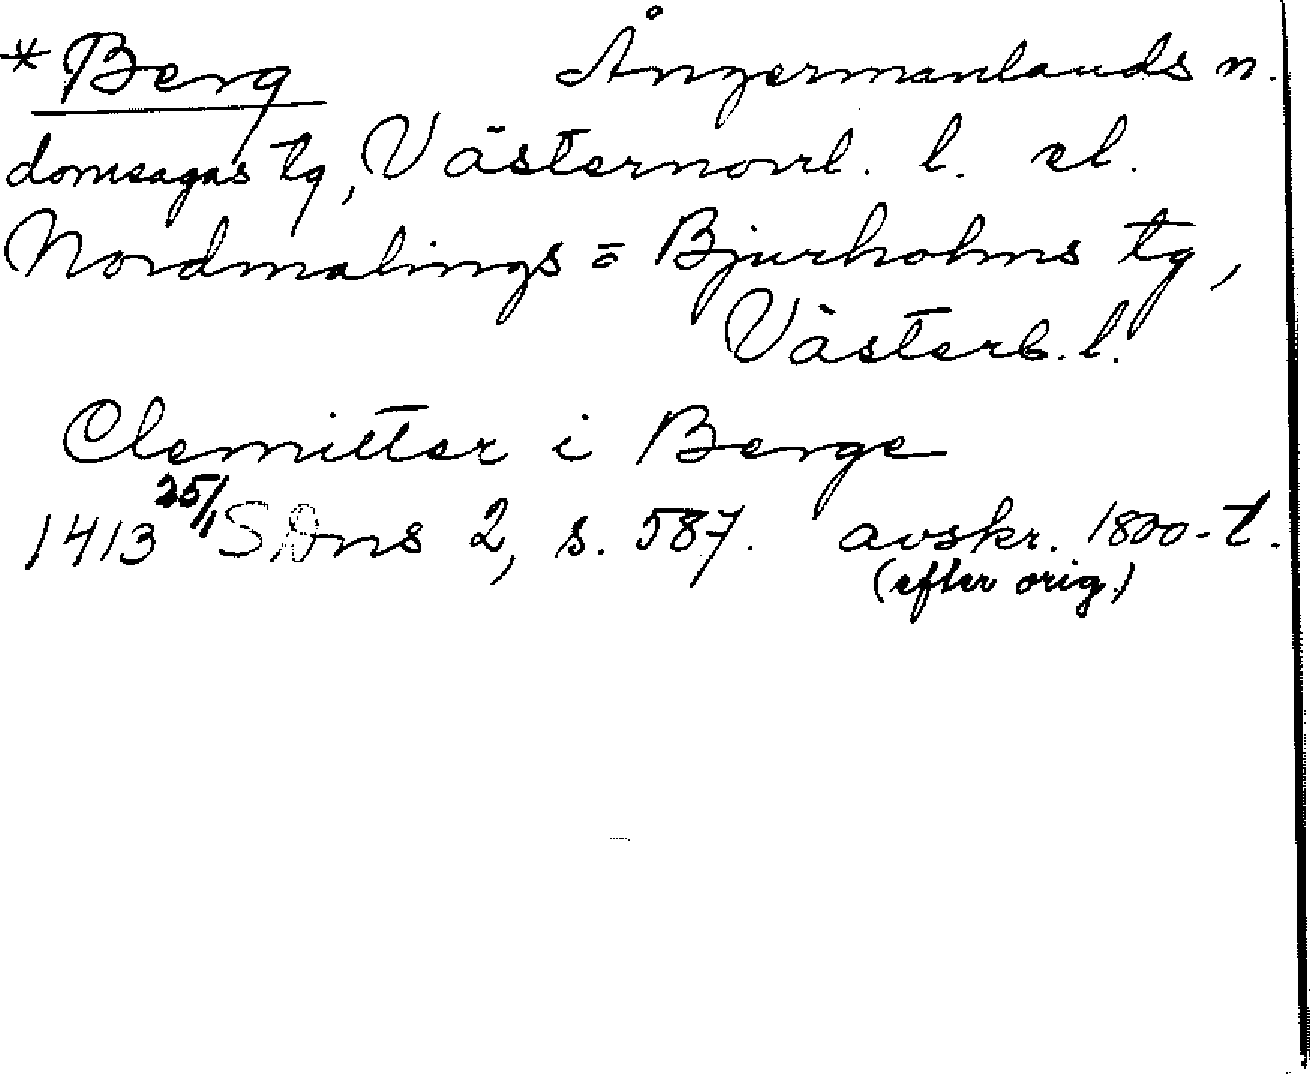 *Berg Ångermanlands n.
domsagas tg, Västernorrl. l. el.
Nordmalings = Bjurholms tg,
Västerb. l.
Clemitter i Berge
1413 25/1 SDns 2, s. 587. avskr. 1800-t.
(efter orig.)